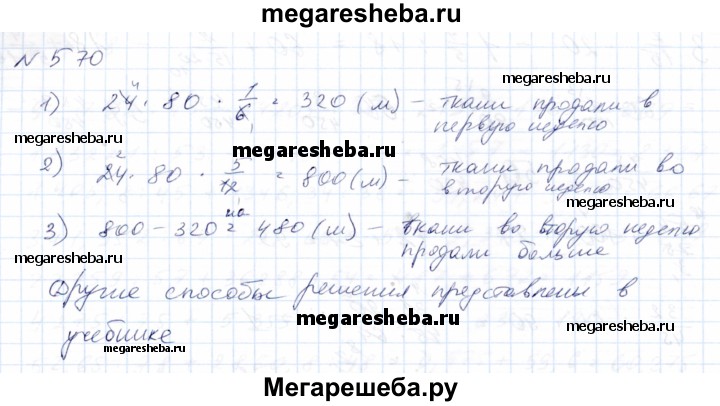 megaresheba.ru
N 570
1) 24 · 80 · 1/6 = 320 (м) – ткани продали в
первую неделю
megaresheba.ru
megaresheba.ru
megaresheba.ru
2) 24 · 80 · 5/12 = 800 (м) – ткани продали во
вторую неделю
3) 800 – 320 = 480 (м) – на ткани во вторую неделю
продали больше
megaresheba.ru
megaresheba.ru
Другие способы решения представлены в
megaresheba.ru
megaresheba.ru
учебнике
megaresheba.ru
Мегарешеба.ру